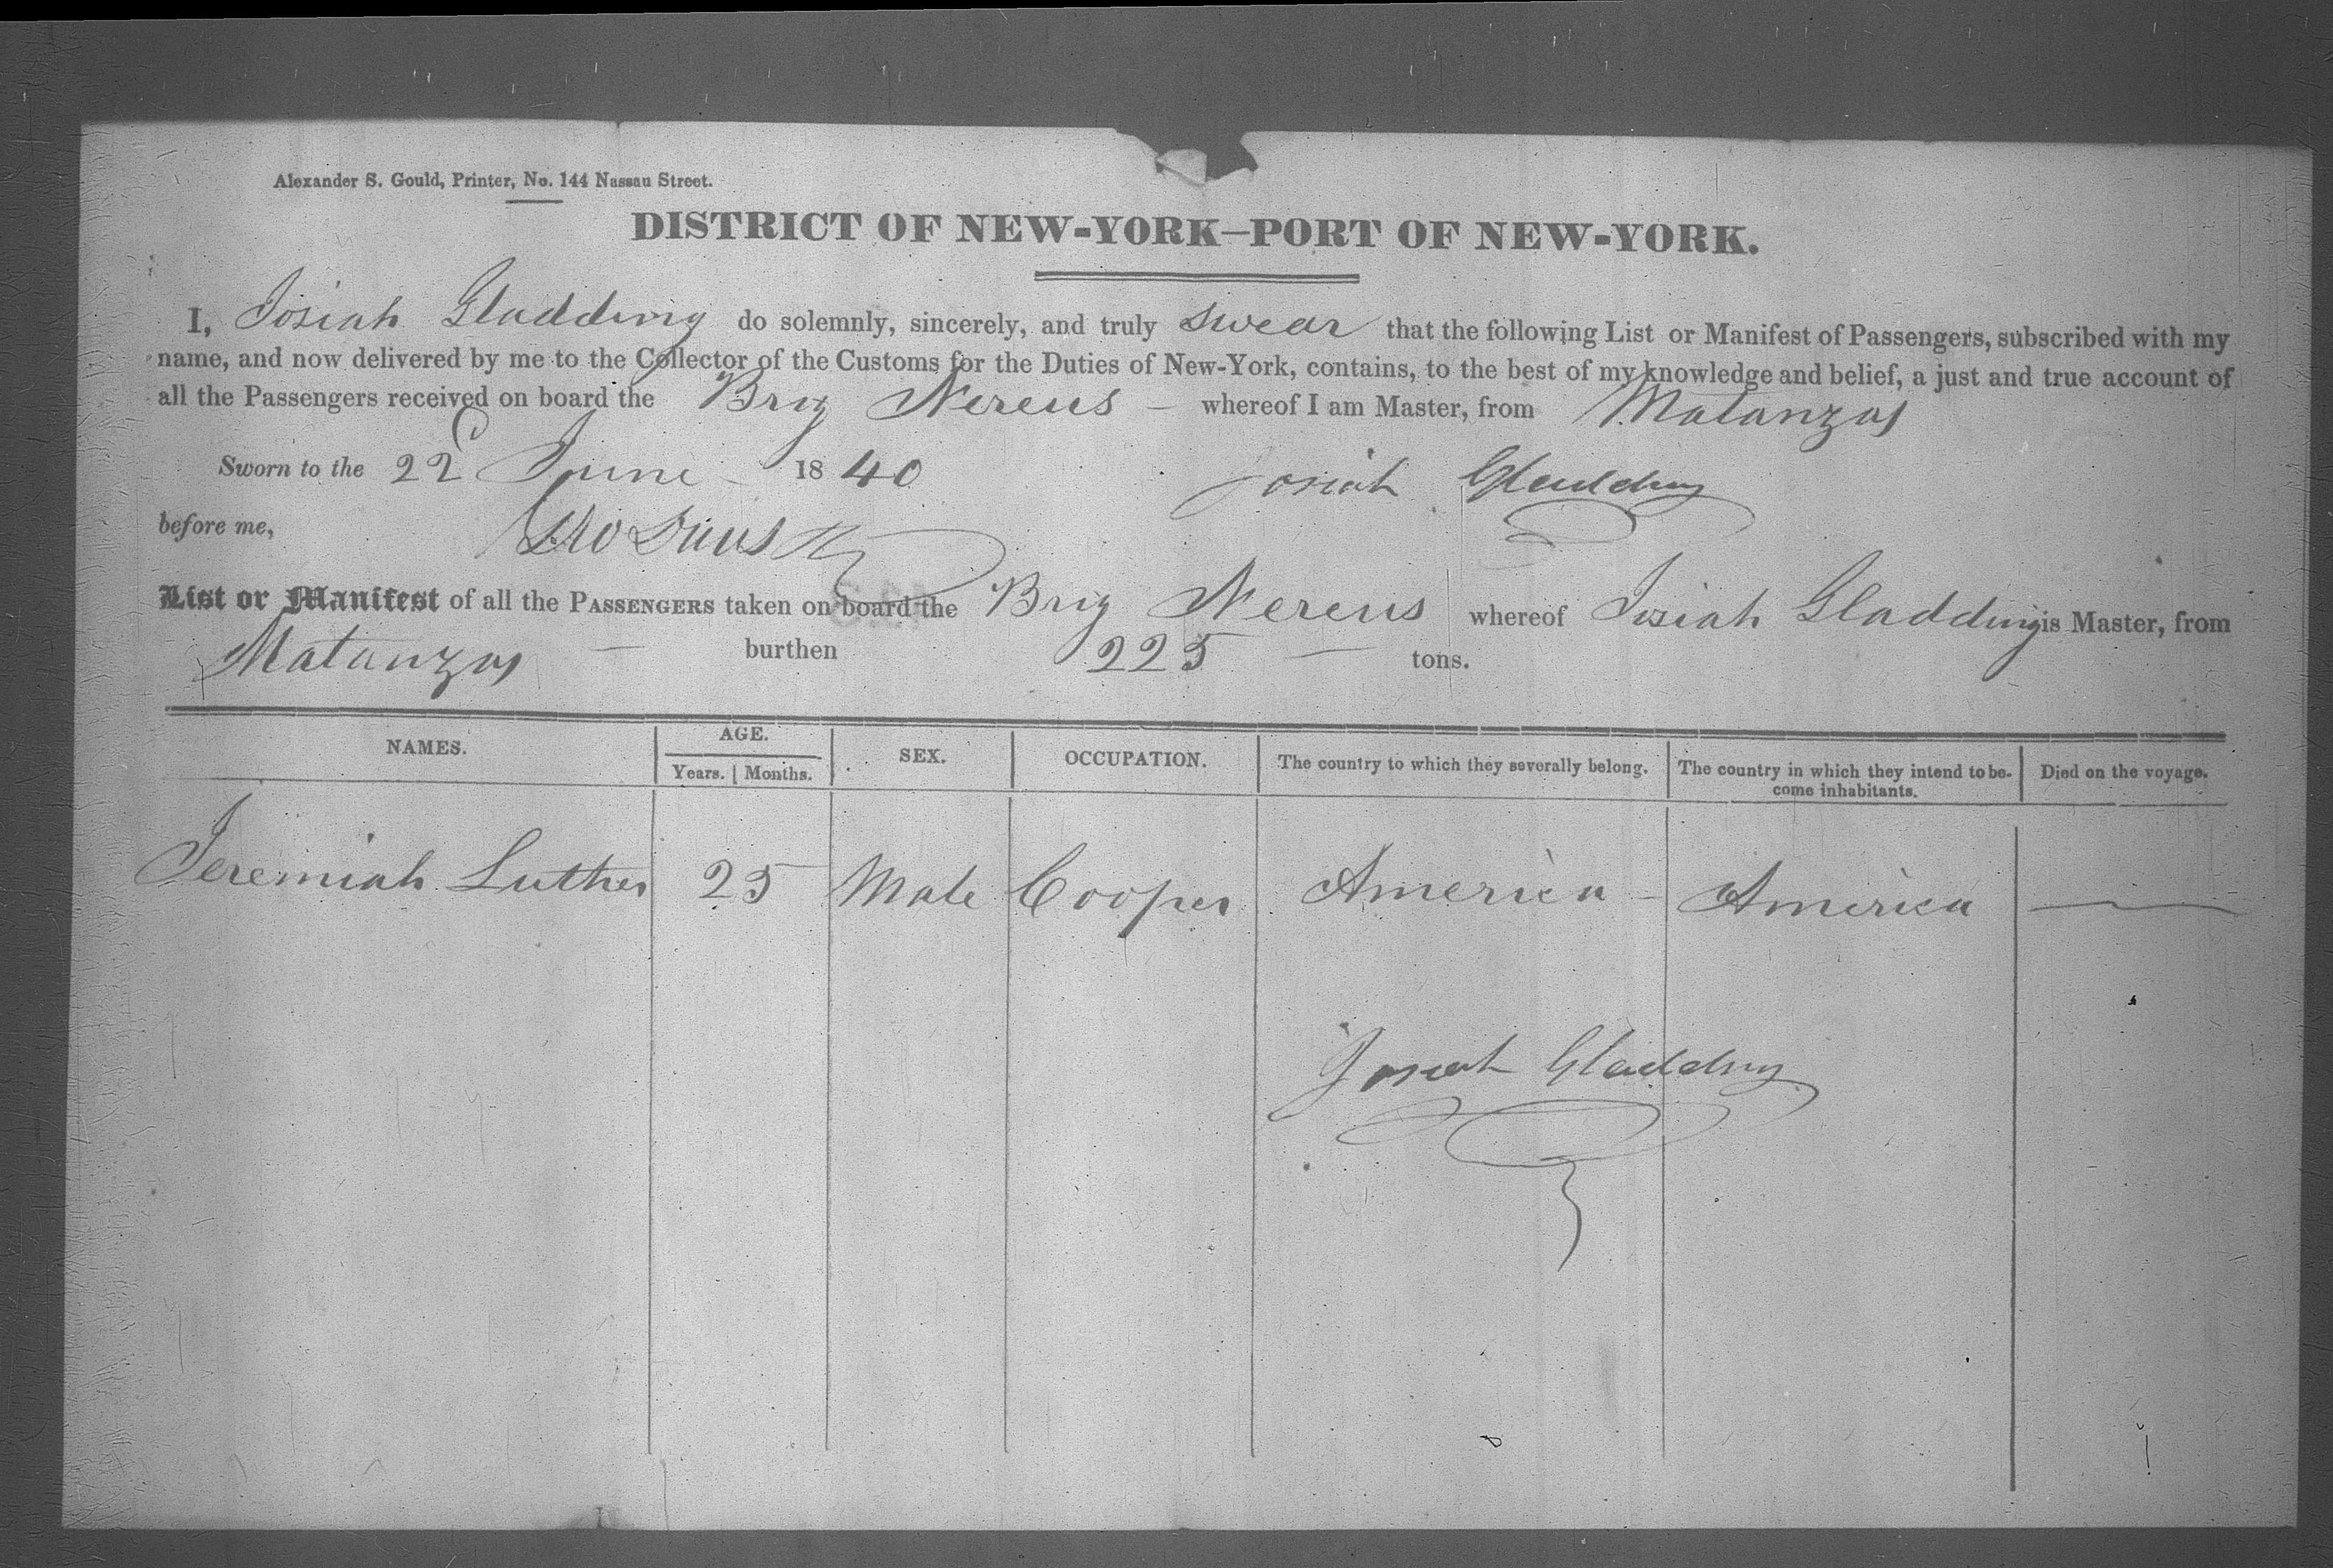 Alexander S. Gould, Printer, No. 144 Nassau Street.
DISTRICT OF NEW-YORK—PORT OF NEW-YORK.
I, Josiah Gladding do solemnly, sincerely, and truly swear that the following List or Manifest of Passengers, subscribed with my
name, and now delivered by me to the Collector of the Customs for the Duties of New-York, contains, to the best of my knowledge and belief, a just and true account of
all the Passengers received on board the Brig Nereus — whereof I am Master, from Matanzas
Sworn to the 22d June 1840 Josiah Gladding
before me,
List or Manifest of all the PASSENGERS taken on board the Brig Nereus whereof Josiah Gladding is Master, from
Matanzas — burthen 225 — tons.
NAMES. AGE. Years. Months. SEX. OCCUPATION. The country to which they severally belong. The country in which they intend to become inhabitants. Died on the voyage.
Jeremiah Luther 25 Male Cooper America — America —
Josiah Gladding